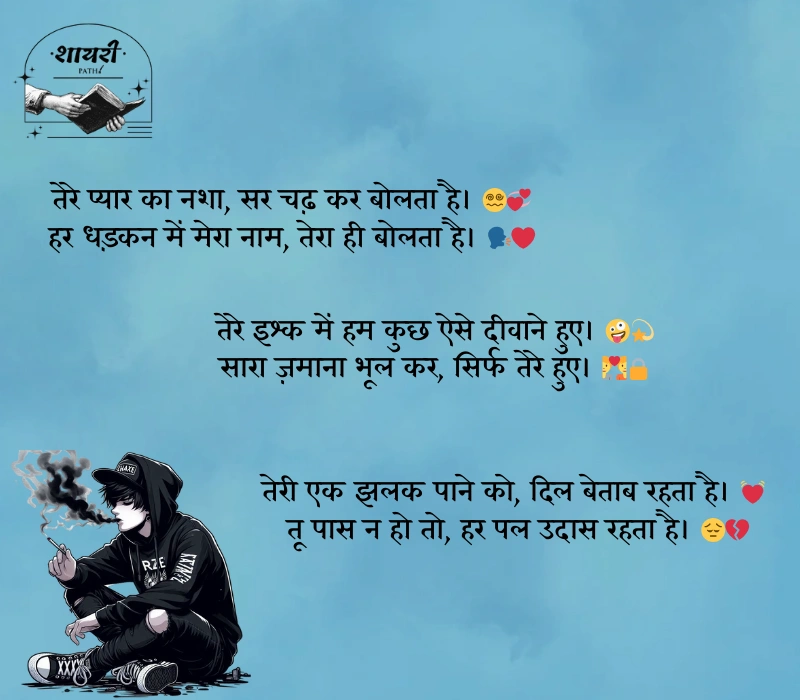 शायरी
PATH
तेरे प्यार का नशा, सर चढ़ कर बोलता है। 😵‍💫💞
हर धड़कन में मेरा नाम, तेरा ही बोलता है। 🗣️❤️
तेरे इश्क में हम कुछ ऐसे दीवाने हुए। 🤪💫
सारा ज़माना भूल कर, सिर्फ तेरे हुए। 💏🔒
तेरी एक झलक पाने को, दिल बेताब रहता है। 💓
तू पास न हो तो, हर पल उदास रहता है। 😔💔
HAXE
RZE